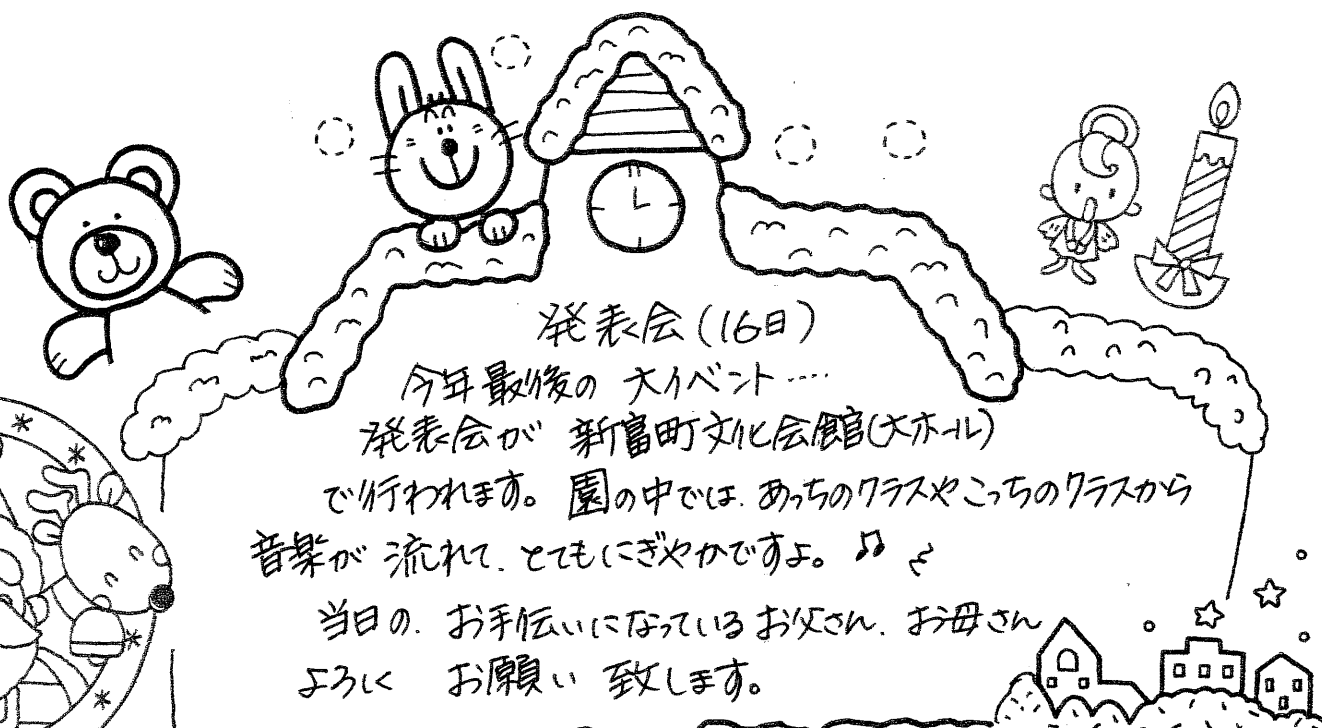 発表会(16日)
今年最後の 大イベント‥‥
発表会が 新富町文化会館(大ホール)
で行われます。園の中では、あっちのクラスやこっちのクラスから
音楽が 流れて、とてもにぎやかですよ。♫
当日の、お手伝いになっているお父さん、お母さん
よろしく お願い 致します。